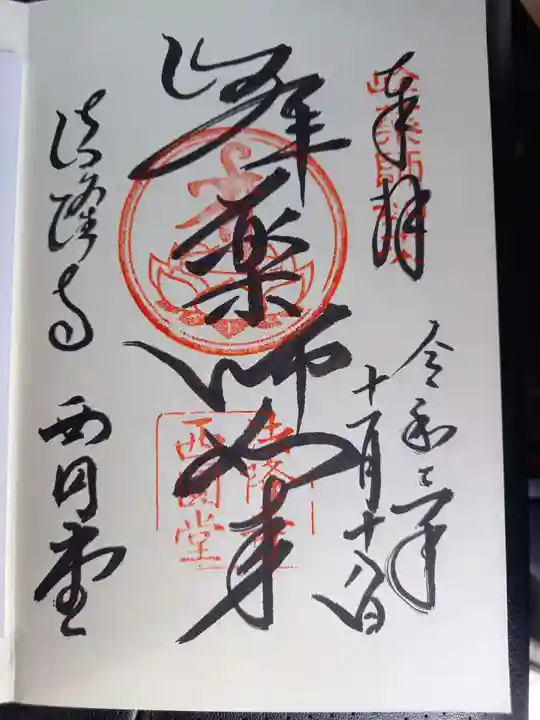 奉拝
令和三年
十一月十八日
峯薬師如来
法隆寺 西円堂
峯薬師
法隆寺
西圓堂